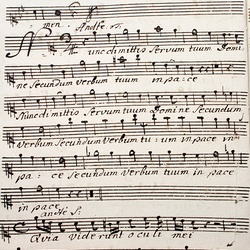 men. Andte
Nunc dimittis Servum tuum Domi
ne Secundum Verbum tuum in pace
Nunc dimittis Servum tuum Domine Secundum
Verbum Secundum Verbum tuum in pace in
pace Secundum Verbum tuum in pace
in pace
andte S:
Quia viderunt oculi mei